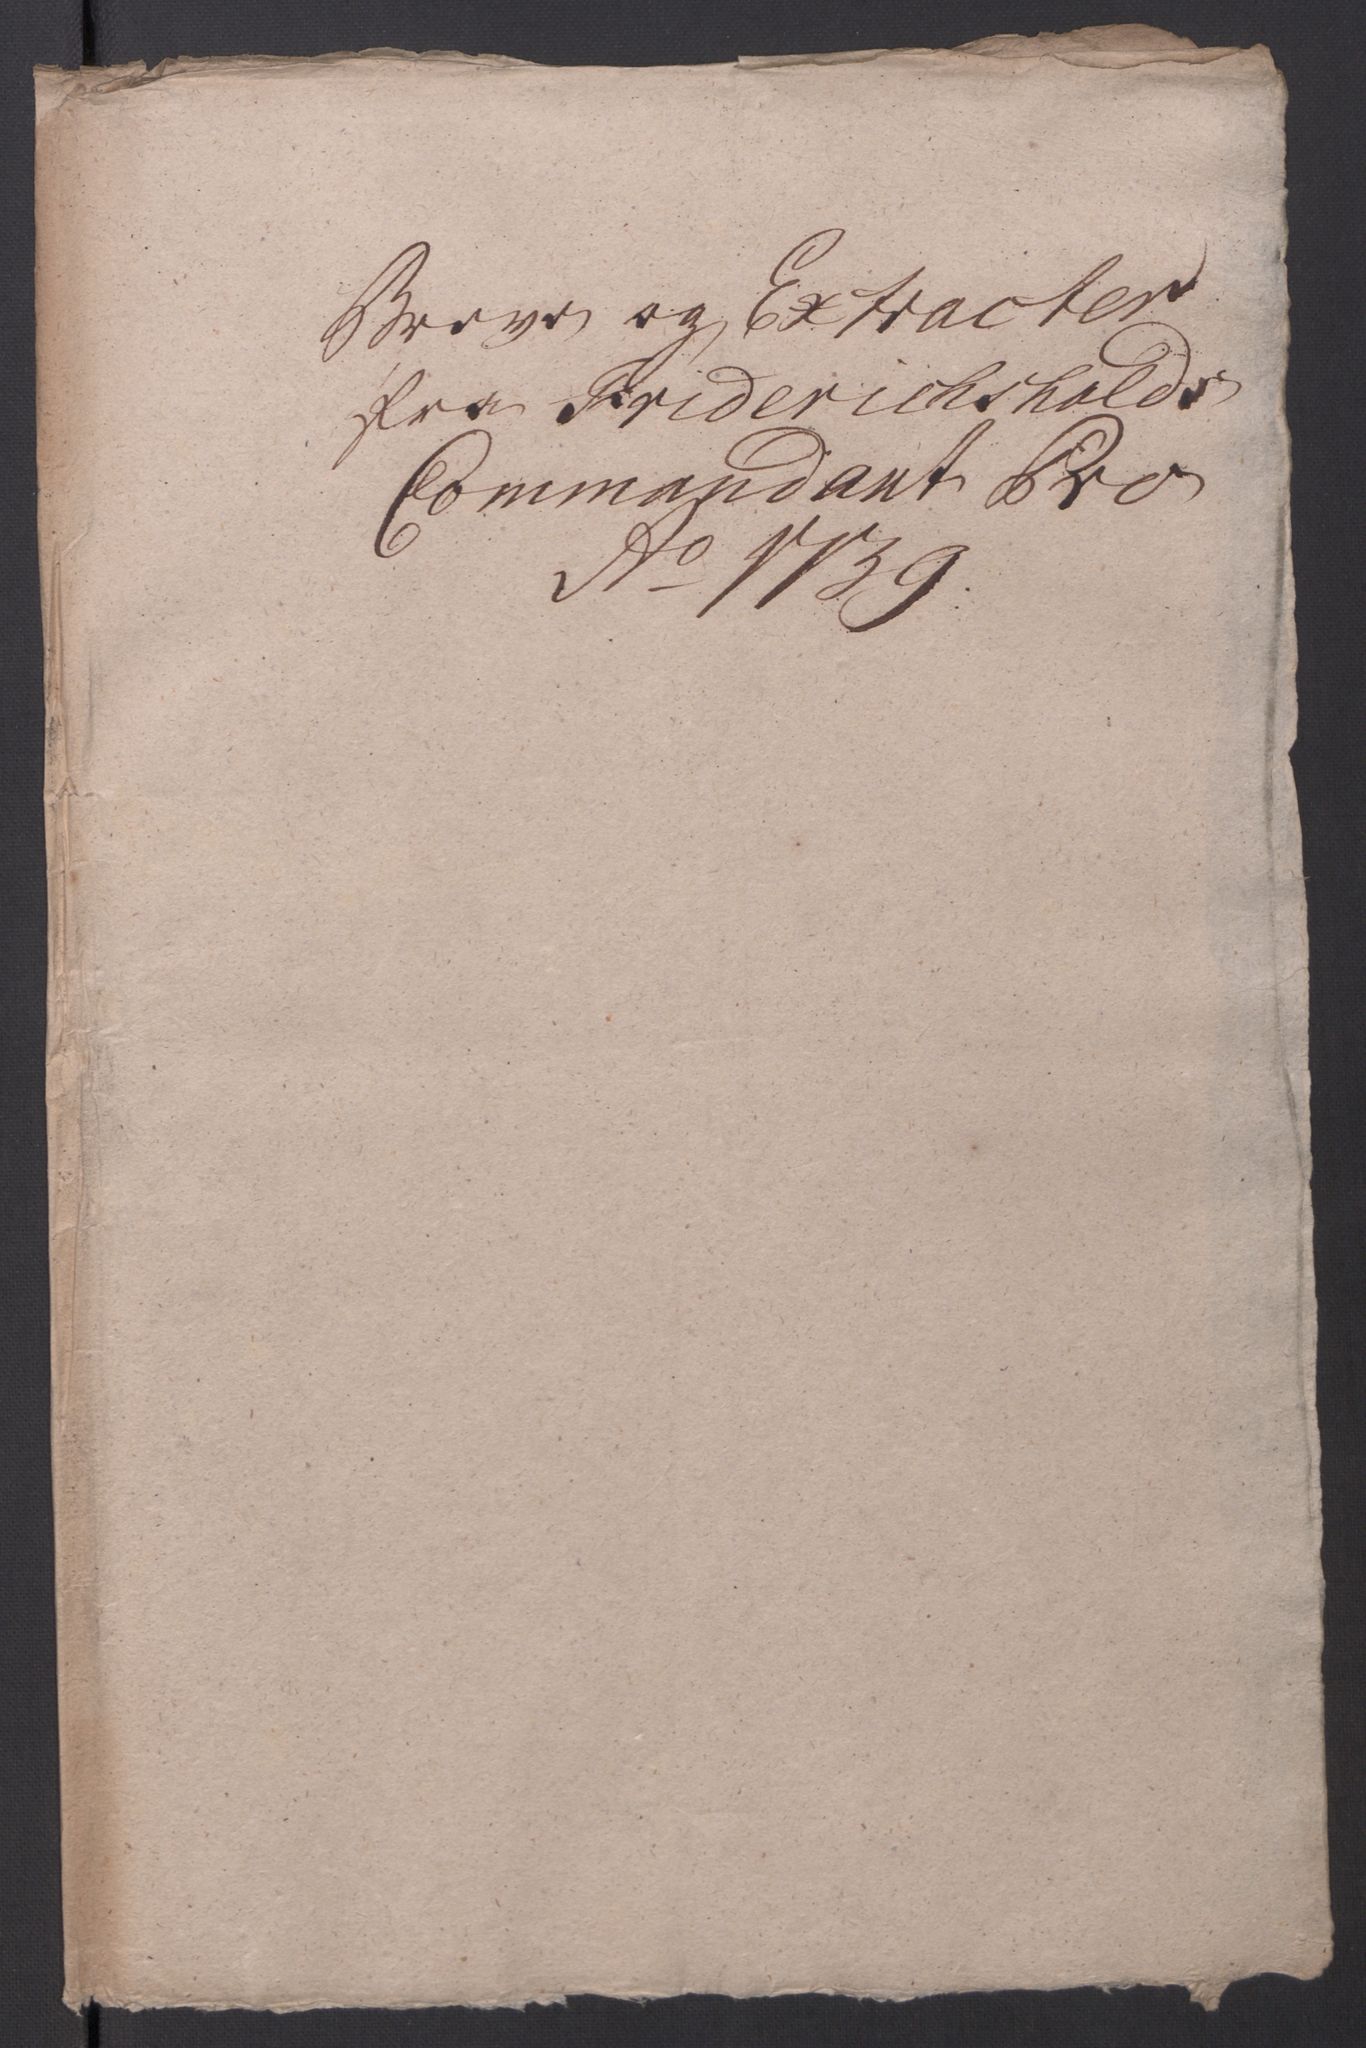 Breve og Extracter
fra Friderichshalds
Commandant Pro
Ao 1739.